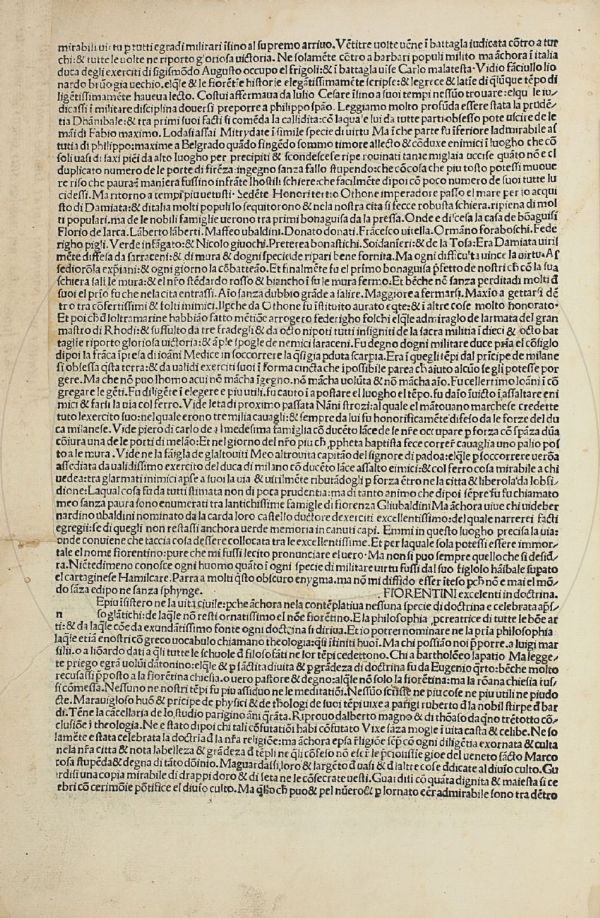 mirabili uirtu p tutti egradi militari ĩsino al supremo arriuo. Vẽtitre uolte uẽne ĩ battagla iudicata cõtro a tur
chi: & tutte le uolte ne riporto gloriosa uictoria. Ne solamẽte cõtro a barbari populi milito ma ãchora ĩ italia
duca degli exerciti di sigismõdo Augusto occupo el frigoli: & ĩ battagla uise Carlo malatesta. Vidio fãciullo lio
nardo bruno gia uechio. elq̃le & le fiorẽtie historie elegãtissimamẽte scripse: & le grece & latie di q̃lũque tẽpo di
ligẽtissimamẽte haueua lecto. Costui affermaua da Iulio Cesare ĩsino a suoi tempi nessũo trouare: elqu le iu
dicassi ĩ militare disciplina douersi preporre a philippo spão. Leggiamo molto profũda essere stata la prudẽ
tia Dhãnibale: & tra primi suoi facti si comẽda la callidita: cõ laquale lui da tutte parti obsesso pote uscire de le
mãi di Fabio maximo. Lodasi assai Mitrydate ĩ simile specie di uirtu Ma ĩ che parte fu ĩferiore ladmirabile as
tutia di philippo: maxime a Belgrado quãdo fingẽdo sommo timore allecto & cõduxe enimici ĩ luogho che cõ
soli uasi di saxi piẽi da alto luogho per precipiti & scondescese ripe rouinati tante miglaia uccise quãto nõn e el
duplicato numero de le porte di firẽza: ingenno sanza fallo stupendo: che cõ cosa che piu tosto potessi muoue
re riso che paura: ĩ maniera fussino infrãte lhostili schiere: che facilmẽte dipoi cõ poco numero de suoi tutte lu
cidessi. Ma ritorno a tempi piu uetusti. Sedẽte Honorio tertio: Othone imperadore passo el mare per lo acqui
sto di Damiata: & ditalia molti populi lo sequitorono & ne la nostra citta si fecce robusta schiera. ripiena di mol
ti populari. ma de le nobili famiglie uerono tra primi bonaguisa da la pressa. Onde e discesa la casa de bõaguisi
Florio de larca. Lãberto lãberti. Maffeo ubaldini. Donato donati. Frãcesco uitella. Ormãno foraboschi. Fede
righo pigli. Verde infãgato: & Nicolo giuochi. Preterea bonastichi. Soldanieri: & de la Tosa: Era Damiata uiril
mẽte diffesa da sarraceni: & di mura & dogni specie di ripari bene fornita. Ma ogni difficulta uince la uirtu. As
sediorõla expiani: & ogni giorno la cõbatteão. Et finalmẽte fu el primo bonaguisa p̃fetto de nostri che cõ la sua
schiera sali le mura: & el nr̃o stẽdardo rosso & biancho ĩ su le mura fermo. Et bẽche nõ sanza perdita di molti di
suoi el pr̃io fu che ne la cita entrassi. Assão sanza dubbio grãde a salire. Maggiore a fermarsi. Maxio a gettarsi dẽ
tro tra cõfertissimi & folti inimici. Ilperche da Othone fu ĩstituito aurato eq̃te: & ĩ altre cose molto honorato.
Et poi che d oltre marine habbião fatto mẽtiõe arrogero federigho folchi elq̃le admiraglo de larmata del gran
mastro di Rhodi: & suffulto da tre fradegli & da octo nipoti tutti insigniti de la sacra militia ĩ dieci & octo bat
taglie riporto gloriosa uictoria: & ãple spogle de nemici saraceni. Fu degno dogni militare duce p̃ria el cõsiglo
dipoi la frãca ĩpresa di ioãni Medice in soccorrere la q̃si gia pduta scarpia. Era ĩ quegli tẽpi dal pricipe de milane
si obsessa q̃sta terra: & da ualidi exerciti suoi ĩ forma cincta che ipossibile parea chaiuto alcũo se gli potesse por
gere. Ma che nõ puo lhomo acui nõ mãcha ĩgegno. nõ mãcha uolũta & nõ mãcha aĩo. Fu cellerrimo Ioãni ĩ cõ
gregare le gẽti. Fu diligẽte ĩ elegere e piu utili. fu cauto ĩ apostare el luogho el tẽpo. fu dãĩo ĩuicto ĩ assaltare eni
mici & farsi la uia col ferro. Vide leta di proximo passata Nãni strozi: al quale el mãtouano marchese credette
tuto lexercito suo: nel quale erono tre milia cauagli: & sempre da lui fu honorificamẽte difeso da le forze del du
ca milanese. Vide piero di carlo de la medesima famiglia cõ ducẽto lãce de le nr̃e occupare p forza cõ sp̃aza dũa
cõiura una de le porti di melão: Et nel giorno del nr̃o piu che ppheta baptista fece correre cauaglia uno palio pos
to a le mura. Vide ne la faĩgla de gl altouiti Meo altrouita capitão del signore di padoa: elq̃le p soccorrere uerõa
assediata da ualidissimo exercito del duca di milano cõ ducẽto lãce assalto eimici: & col ferro cosa mirabile a chi
uedea: tra glarmati inimici apse a suoi la uia & uirilmẽte ributãdogli p forza ẽtro ne la citta & liberola da lobsi
dione: Laqual cosa fu da tutti stimata non di poca prudentia: ma di tanto animo che dipoi sẽpre fu fu chiamato
meo sanza paura sono enumerati tra lantichissime famiglie di fiorenza Gliubaldini Ma ãchora uiue chi uide ber
nardino ubaldini nominato da la carda loro castello ductore dexerciti excellentissimo: del quale narrerei facti
egregii: se di quegli non restassi anchora uerde memoria in canuti capi. Emmi in questo luogho precisa la uia:
onde conuiene che taccia cosa dessere collocata tra le excellentissime. Et per laquale sola potessi essere immor-
tale el nome fiorentino: pure che mi fussi lecito pronunciare el uero. Ma non si puo sempre quello che si desidra
ra. Niẽtedimeno conosce ogni huomo quãto ĩ ogni specie di militare uirtu fussi dal suo figlolo hãibale supato
el cartaginese Hamilcare. Parra a molti q̃sto obscuro enygma. ma nõ mi diffido esser ĩteso pche nõ e mai el mõ
do sãza edipo ne sanza sphynge. FIORENTINI excelenti in doctrina.
Epiu ĩsistero ne la uita ciuile: pche ãchora nela cõtẽplatiua nessuna specie di doctrina e celebrata ap̃si
n so glãtichi: de laq̃le nõ resti ornatissimo el nõe fiorẽtino. Ela philosophia pcreatrice di tutte le bõe ar
ti: & da laq̃le cõe da exundãtissimo fonte ogni doctrina si diriua. Et io potrei nominare ne la pria philosophia
laq̃le etia enostri cõ greco uocabulo chiamano theologia: q̃si ĩfiniti huoĩ. Ma chi possião noi pporre. a luigi mar
sili. o a lionardo dati a q̃li tutte le schuole d filosofãti ne lor tẽpi cedettono. Chi a bartholõeo lapatio Ma legge-
te priego egrãi uolũi datonino: elq̃le & p sactita duita & p grãdeza di doctrina fu da Eugenio q̃rto: bẽche molto
recusassi pposto a la fiorẽtina chiesia. o uero pastore & degno: alq̃le nõ solo la fiorẽtina: ma la rõana chiesia tus
si cõmessa. Nessuno ne nostri tẽpi fu piu assiduo ne le meditatiõi. Nessũo scrisse ne piu cose ne piu utili ne piu docte
cte. Marauigloso huõ & pricipe de physici & de theologi de suoi tẽpi uixe a parigi ruberto d la nobil stirpe d bar
di. Tẽne la cãcellaria de lo studio parigino ãni q̃rãta. Riprouo dalberto magno & di thõaso daqno trẽtotto cõ-
clusiõe ĩ theologia. Ne e stato dipoi chi tali cõfutatiõi habi cõfutato Vixe sãza mogle ĩ uita casta & celibe. Ne so
lamẽte e stata celebrata la doctria d la nr̃a religiõe: ma ãchora epsa rligiõe sẽpre cõ ogni diligẽtia exornata & culta
nela nr̃a citta & nota labelleza & grãdeza d tẽpli ne q̃li cõfesso nõ esser le pciosissie gioe del ueneto sãcto Marco
cosa stupẽda & degna di tãto dõinio. Ma guardassi. loro & largẽto d uasi & d altre cose ddicate al diuĩo culto. Gu
ardisi una copia mirabile di drappi doro & di seta ne le cõsecrate uesti. Guardisi cõ quãta dignita & maiesta si ce
lebri cõ cerimõie põtifice el diuĩo culto. Ma q̃llo che puo & pel nũero & p lornato eẽr admirabile sono tra dẽtro